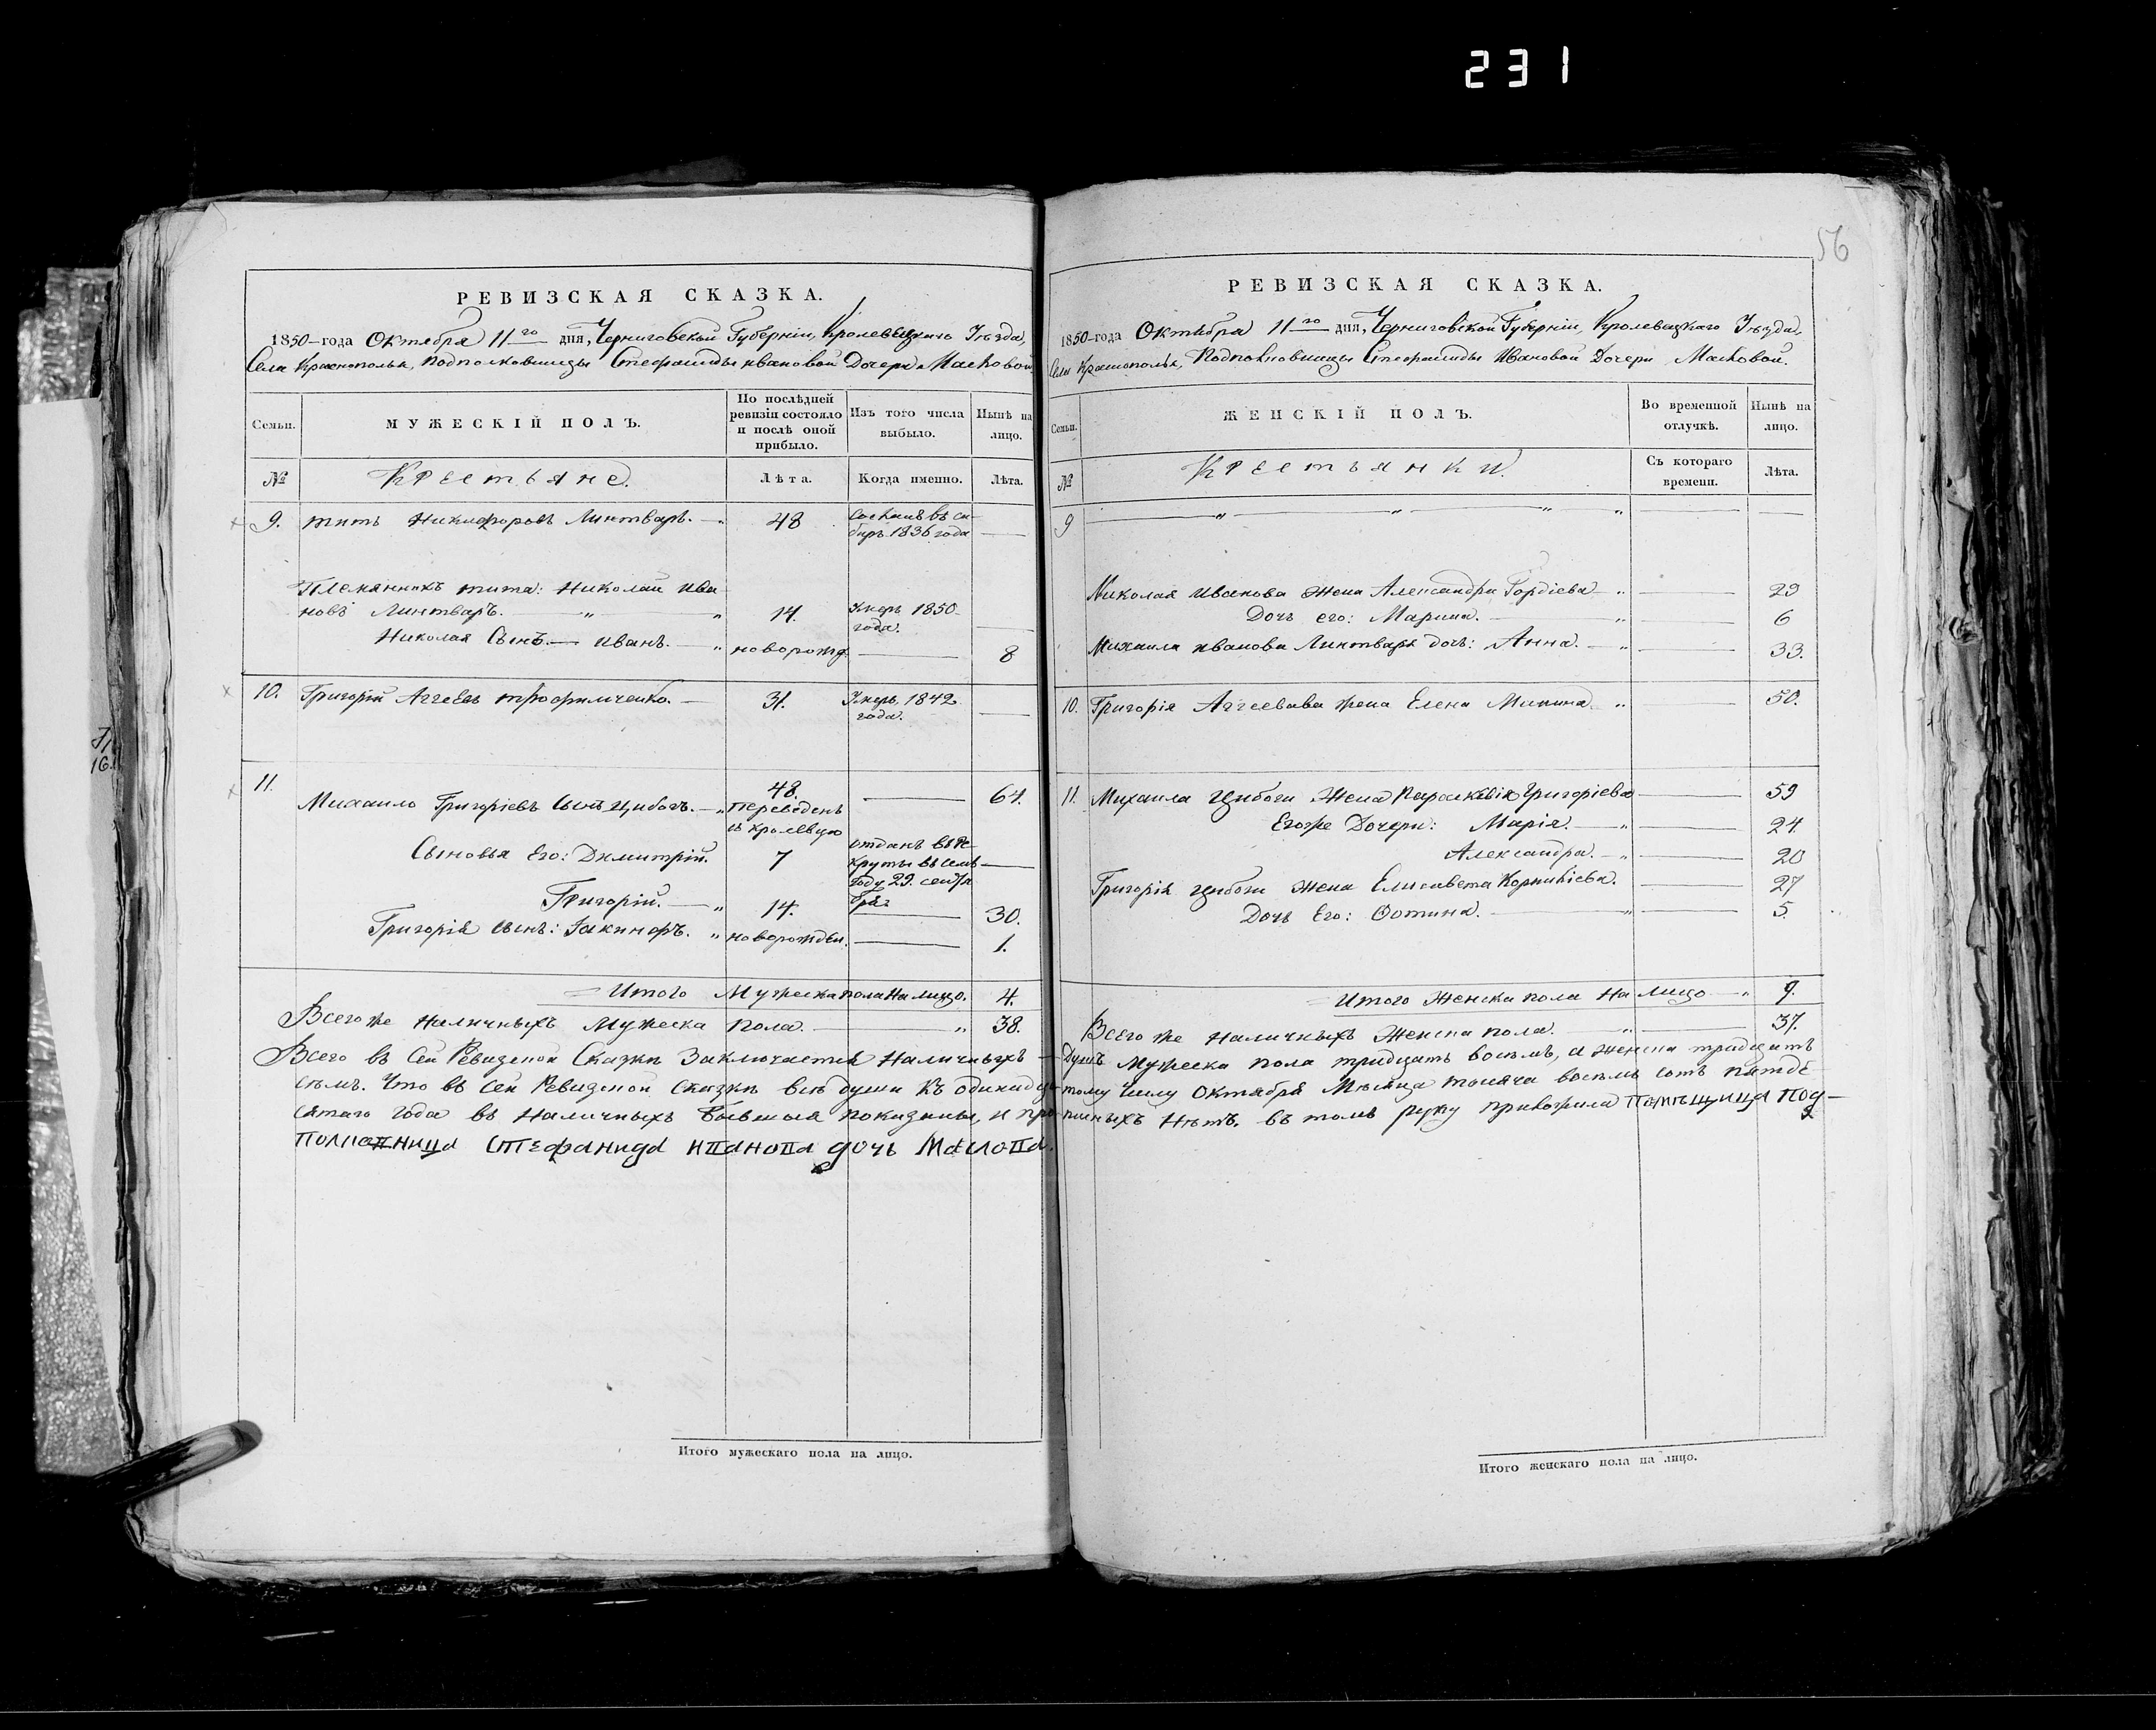 231
56
РЕВИЗСКАЯ СКАЗКА.
1850-года Октября 11го дня, Черниговской Губерніи, Кролевецкаго Уѣзда,
Села Краснополья, Подполковницы Стефаниды Ивановой Дочери Масловой
Семьи.
МУЖЕСКІЙ ПОЛЪ.
По послѣдней ревизіи состояло и послѣ оной прибыло.
Изъ того числа выбыло.
Нынѣ на лицо.
№
Крестьяне.
Лѣта.
Когда именно.
Лѣта.
9. Титъ Никифоровъ Линтваръ. — „ 48 Сосланъ въ Си-
биръ 1836 года —
Племянникъ Тита: Николай Ива
новъ Линтваръ. „ „ 14. Умеръ 1850
года. —
Николая Сынъ — Иванъ. — „ новорожд. — 8
10. Григорій Аггеевъ Трофимченко. — 31. Умеръ, 1842
года. —
11. 48.
Михайло Григоріевъ Сынъ Цибогъ. — „ переведенъ — 64.
Сыновья Его: Дмитрій. 7 отданъ въ Ре-
круты
Григорій. — „ 14. — 30.
Григорія Сынъ: Іакинфъ. „ новорожден. — 1.
Итого Мужеска пола На лицо. 4.
Всего же Наличныхъ Мужеска Пола. — „ 38.
Всего въ Сей Ревизской Сказкѣ Заключается Наличныхъ —
семь. Что въ Сей Ревизской Сказкѣ всѣ души Къ одинадца-
сятаго Года въ Наличныхъ бывшія показаны, и про-
Стефанида Иванова дочь Маслова.
Итого мужескаго пола на лицо.
РЕВИЗСКАЯ СКАЗКА.
1850-года Октября 11го дня, Черниговской Губерніи, Кролевецкаго Уѣзда,
Села Краснополья, Подполковницы Стефаниды Ивановой Дочери Масловой.
Семьи.
ЖЕНСКІЙ ПОЛЪ.
Во временной отлучкѣ.
Нынѣ на лицо.
№
Крестьянки
Съ котораго времени.
Лѣта.
9 — „ — „ — „ — „ — —
Николая Иванова Жена Александра Гордіева — „ — 29
Дочь его: Марина. — „ — 6
Михаила Иванова Линтваря дочь: Анна. — „ — 33.
10. Григорія Аггеевава жена Елена Минина „ — 50.
11. Михаила Цибоги Жена Параскевія Григоріева — 59
Егоже Дочери: Марія. — „ — 24
Александра. — „ — 20
Григорія Цибоги Жена Елисавета Корниліева. — 27
Дочь Его: Фотина. — „ — 5.
Итого Женска пола На Лицо — „ 9.
Всего же Наличныхъ Женска пола. — „ — 37.
Душъ Мужеска пола тридцать восемь, а Женска тридцать
тому Числу Октября Мѣсяца тысяча восемь сотъ пятде
писныхъ Нѣтъ. въ томъ руку приложила помѣщица Под-
Итого женскаго пола на лицо.